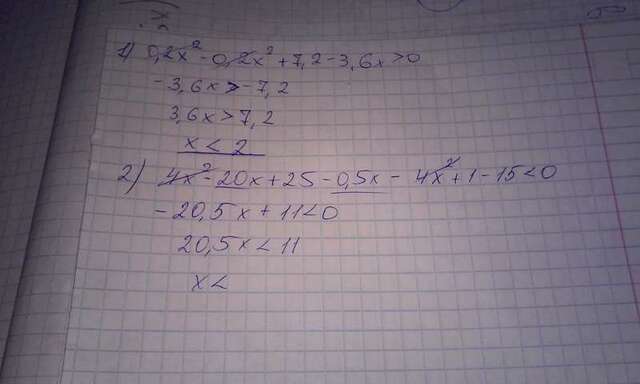 1) 0,2x² - 0,2x² + 7,2 - 3,6x > 0
- 3,6x > - 7,2
3,6x > 7,2
x < 2
2) 4x² - 20x + 25 - 0,5x - 4x² + 1 - 15 < 0
- 20,5x + 11 < 0
20,5x < 11
x <